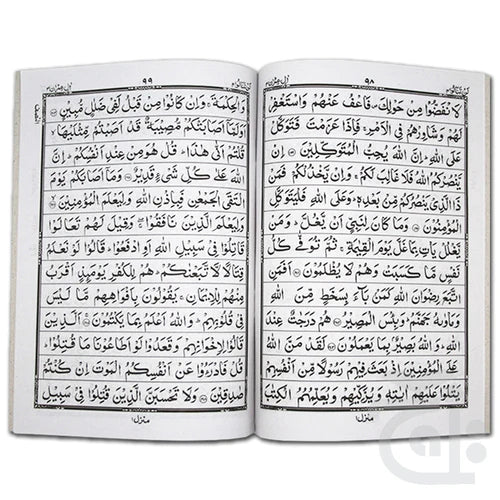 ۹۸
لَا نْفَضُّوْا مِنْ حَوْلِكَ ۪ فَاعْفُ عَنْهُمْ وَاسْتَغْفِرْ
لَهُمْ وَشَاوِرْهُمْ فِي الْاَمْرِ ۚ فَاِذَا عَزَمْتَ فَتَوَكَّلْ
عَلَى اللّٰهِ ؕ اِنَّ اللّٰهَ يُحِبُّ الْمُتَوَكِّلِيْنَ ۝ اِنْ
يَّنْصُرْكُمُ اللّٰهُ فَلَا غَالِبَ لَكُمْ ۚ وَاِنْ يَّخْذُلْكُمْ فَمَنْ
ذَا الَّذِيْ يَنْصُرُكُمْ مِّنْۢ بَعْدِهٖ ؕ وَعَلَى اللّٰهِ فَلْيَتَوَكَّلِ
الْمُؤْمِنُوْنَ ۝ وَمَا كَانَ لِنَبِيٍّ اَنْ يَّغُلَّ ؕ وَمَنْ
يَّغْلُلْ يَاْتِ بِمَا غَلَّ يَوْمَ الْقِيٰمَةِ ۚ ثُمَّ تُوَفّٰى كُلُّ
نَفْسٍ مَّا كَسَبَتْ وَهُمْ لَا يُظْلَمُوْنَ ۝ اَفَمَنِ
اتَّبَعَ رِضْوَانَ اللّٰهِ كَمَنْۢ بَآءَ بِسَخَطٍ مِّنَ اللّٰهِ
وَمَاْوٰىهُ جَهَنَّمُ ؕ وَبِئْسَ الْمَصِيْرُ ۝ هُمْ دَرَجٰتٌ عِنْدَ
اللّٰهِ ؕ وَاللّٰهُ بَصِيْرٌۢ بِمَا يَعْمَلُوْنَ ۝ لَقَدْ مَنَّ اللّٰهُ
عَلَى الْمُؤْمِنِيْنَ اِذْ بَعَثَ فِيْهِمْ رَسُوْلًا مِّنْ اَنْفُسِهِمْ
يَتْلُوْا عَلَيْهِمْ اٰيٰتِهٖ وَيُزَكِّيْهِمْ وَيُعَلِّمُهُمُ الْكِتٰبَ
منزل ۱
۹۹
وَالْحِكْمَةَ ۚ وَاِنْ كَانُوْا مِنْ قَبْلُ لَفِيْ ضَلٰلٍ مُّبِيْنٍ ۝
اَوَلَمَّآ اَصَابَتْكُمْ مُّصِيْبَةٌ قَدْ اَصَبْتُمْ مِّثْلَيْهَا ۙ
قُلْتُمْ اَنّٰى هٰذَا ؕ قُلْ هُوَ مِنْ عِنْدِ اَنْفُسِكُمْ ؕ اِنَّ
اللّٰهَ عَلٰى كُلِّ شَيْءٍ قَدِيْرٌ ۝ وَمَآ اَصَابَكُمْ يَوْمَ
الْتَقَى الْجَمْعٰنِ فَبِاِذْنِ اللّٰهِ وَلِيَعْلَمَ الْمُؤْمِنِيْنَ ۝
وَلِيَعْلَمَ الَّذِيْنَ نَافَقُوْا ۖۚ وَقِيْلَ لَهُمْ تَعَالَوْا
قَاتِلُوْا فِيْ سَبِيْلِ اللّٰهِ اَوِ ادْفَعُوْا ؕ قَالُوْا لَوْ نَعْلَمُ
قِتَالًا لَّا تَّبَعْنٰكُمْ ؕ هُمْ لِلْكُفْرِ يَوْمَئِذٍ اَقْرَبُ
مِنْهُمْ لِلْاِيْمَانِ ۚ يَقُوْلُوْنَ بِاَفْوَاهِهِمْ مَّا لَيْسَ
فِيْ قُلُوْبِهِمْ ؕ وَاللّٰهُ اَعْلَمُ بِمَا يَكْتُمُوْنَ ۝ اَلَّذِيْنَ
قَالُوْا لِاِخْوَانِهِمْ وَقَعَدُوْا لَوْ اَطَاعُوْنَا مَا قُتِلُوْا ؕ
قُلْ فَادْرَءُوْا عَنْ اَنْفُسِكُمُ الْمَوْتَ اِنْ كُنْتُمْ
صٰدِقِيْنَ ۝ وَلَا تَحْسَبَنَّ الَّذِيْنَ قُتِلُوْا فِيْ سَبِيْلِ
منزل ۱